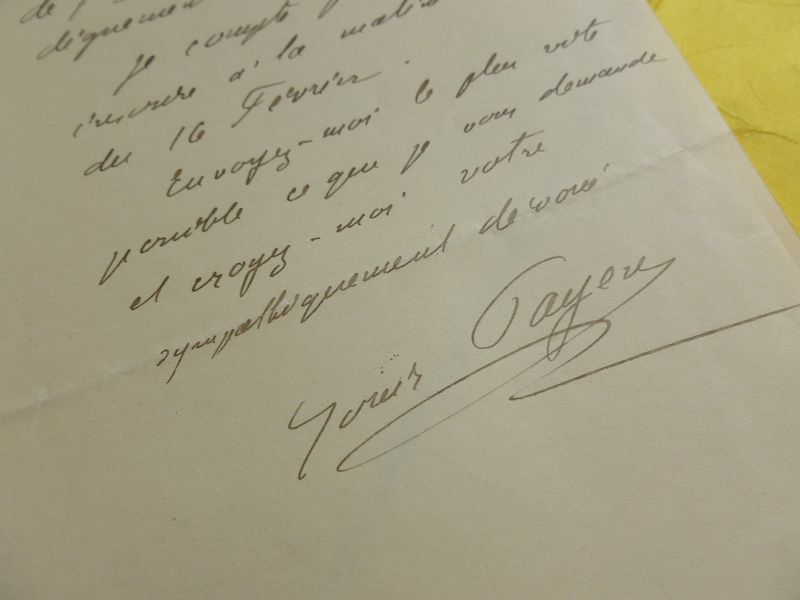 dignement
Je compte
inscrire à la matin
du 16 Février.
Envoyez-moi le plus vite
possible ce que je vous demande
et croyez-moi votre
sympathiquement dévoué
Louis Payen